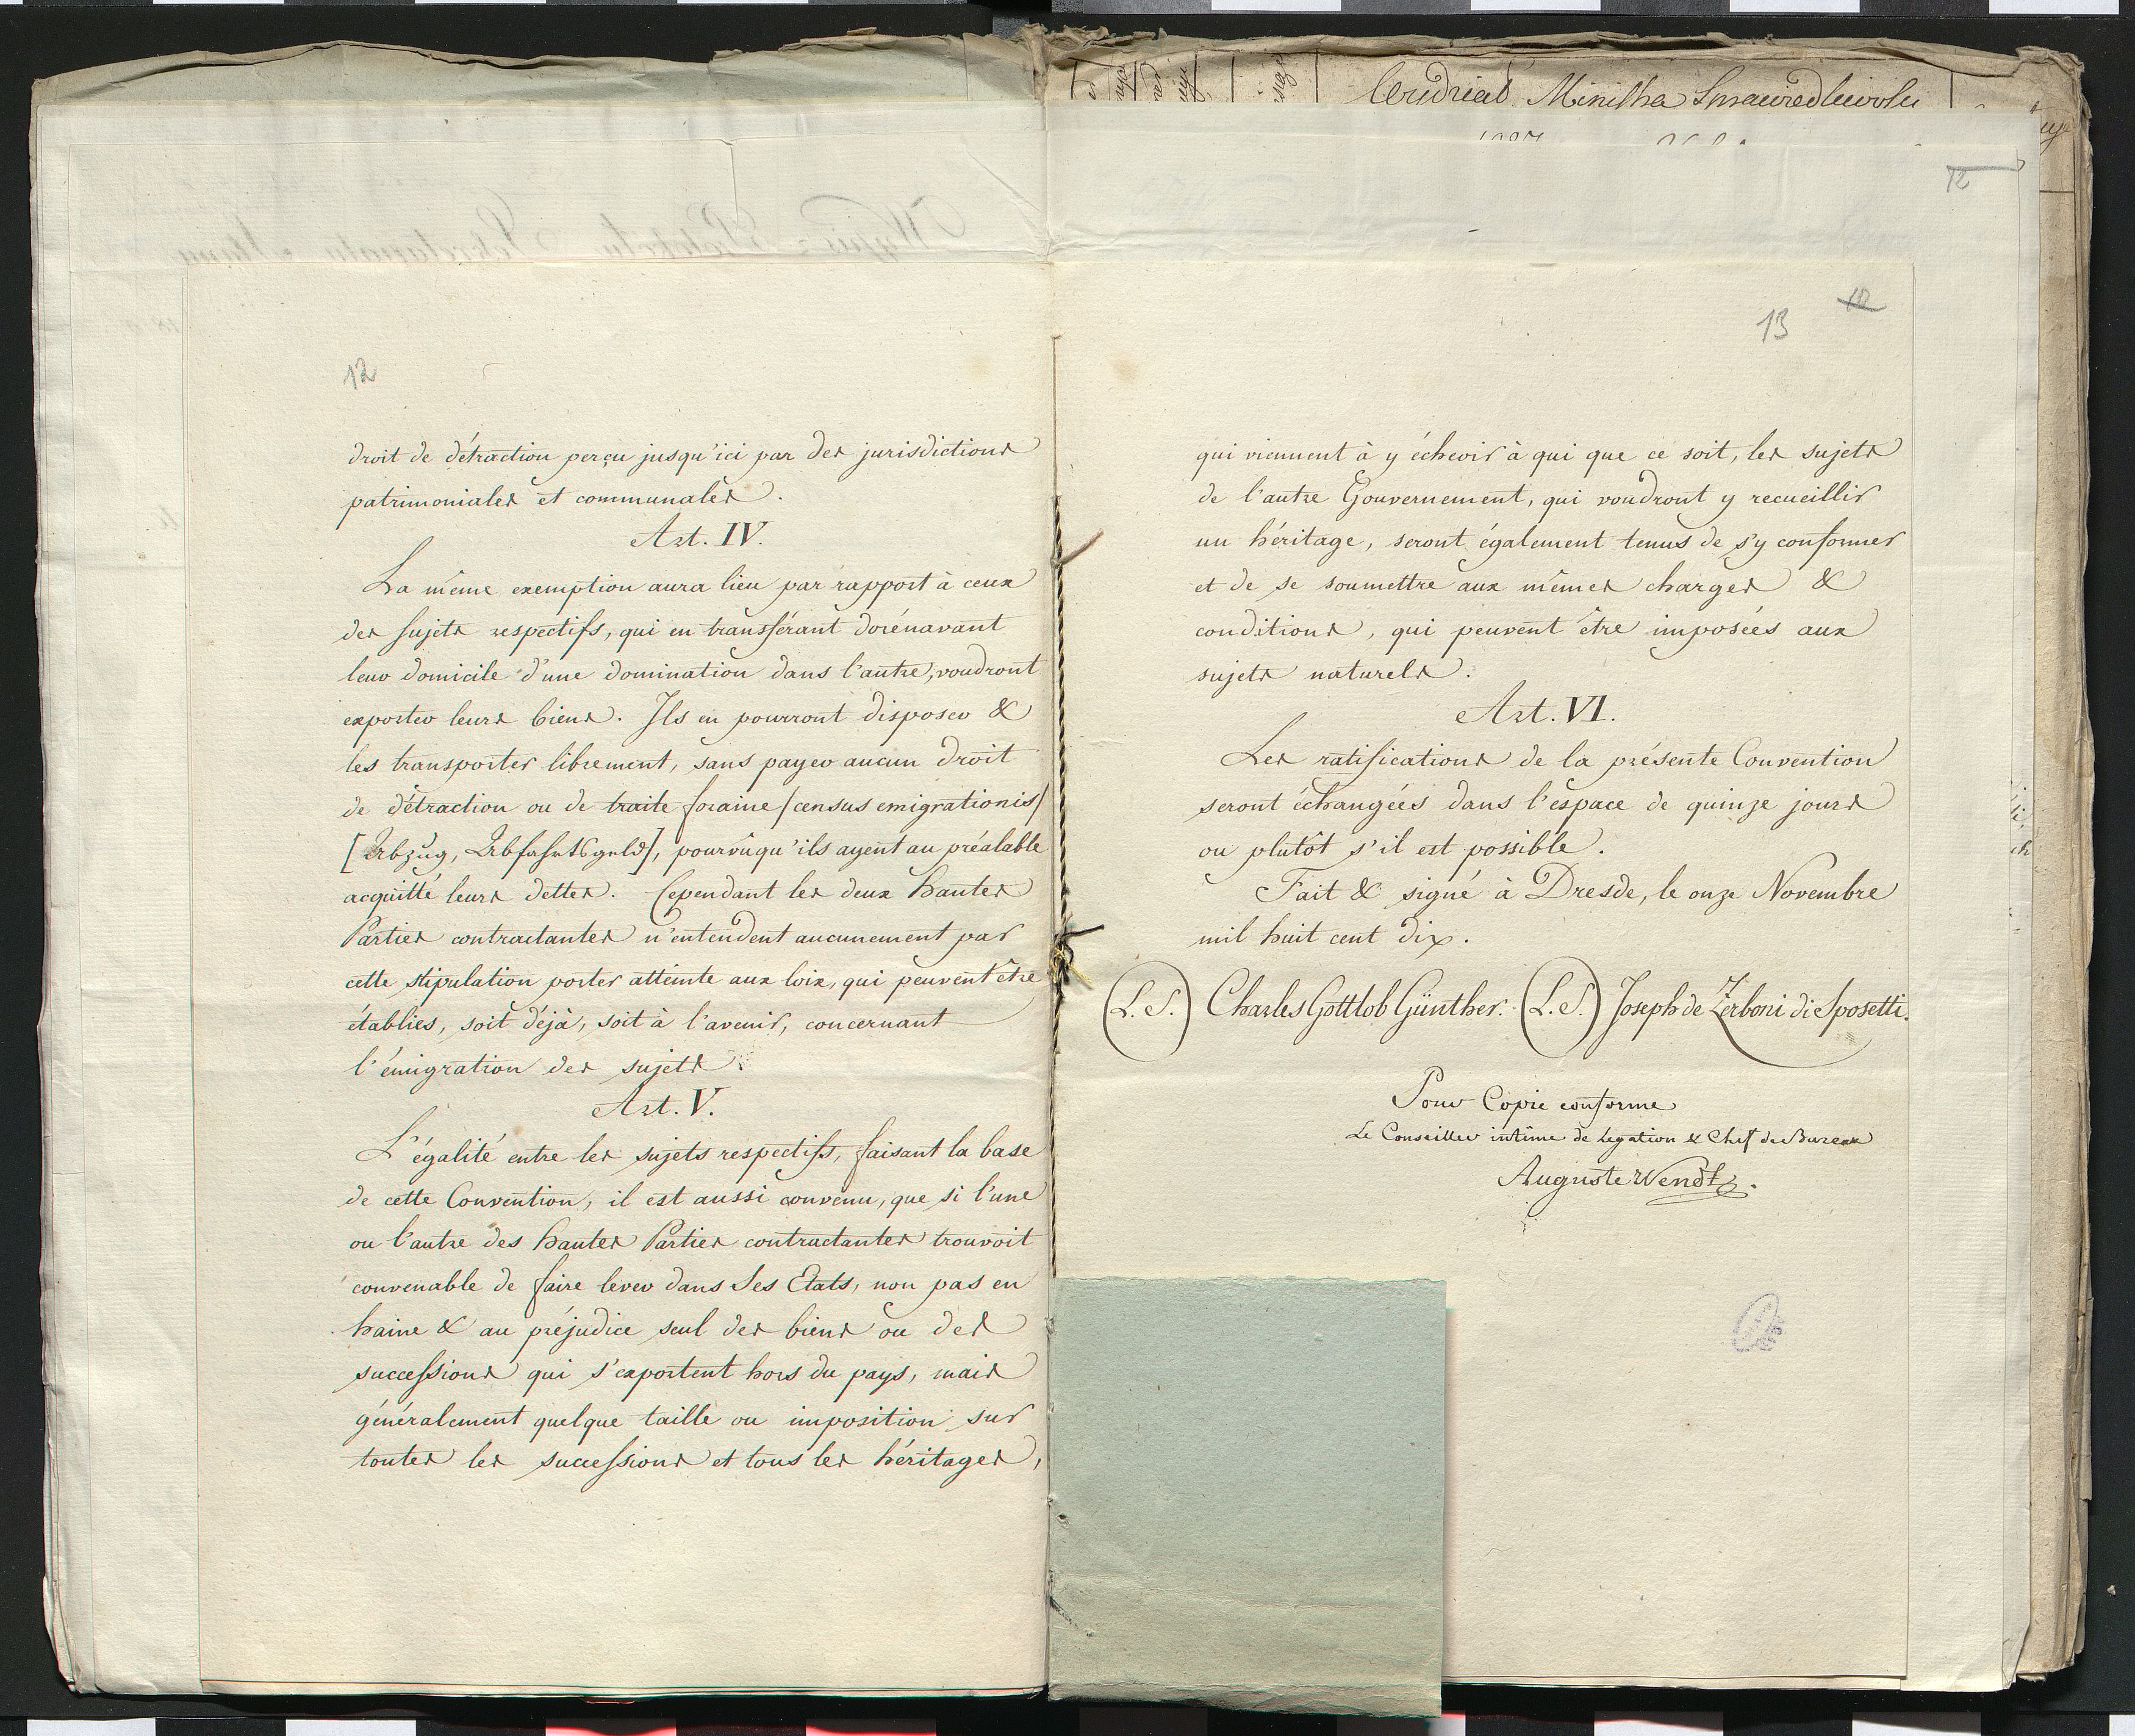 12
droit de détraction perçu jusqu'ici par des jurisdictions
patrimoniales et communales.
Art. IV.
La même exemption aura lieu par rapport à ceux
des sujets respectifs, qui en transférant dorénavant
leur domicile d'une domination dans l'autre, voudront
exporter leurs biens. Ils en pourront disposer &
les transporter librement, sans payer aucun droit
de détraction ou de traite foraine /census emigrationis/
[Abzug, Abfahrtsgeld], pourvûqu'ils ayent au préalable
acquitté leurs dettes. Cependant les deux hautes
Parties contractantes n'entendent aucunement par
cette stipulation porter atteinte aux loix, qui peuvent être
établies, soit déjà, soit à l'avenir, concernant
l'émigration des sujets.
Art. V.
L'égalité entre les sujets respectifs, faisant la base
de cette Convention, il est aussi convenu, que si l'une
ou l'autre des hautes Parties contractantes trouvoit
convenable de faire lever dans Ses Etats, non pas en
haine & au préjudice seul des biens ou des
successions qui s'exportent hors du pays, mais
généralement quelque taille ou imposition sur
toutes les successions et tous les héritages,
12
13
12
qui viennent à y échevir à qui que ce soit, les sujets
de l'autre Gouvernement, qui voudront y recueillir
un héritage, seront également tenus de s'y conformer
et de se soumettre aux mêmes charges &
conditions, qui peuvent être imposées aux
sujets naturels.
Art. VI.
Les ratifications de la présente Convention
seront échangées dans l'espace de quinze jours
ou plutôt s'il est possible.
Fait & signé à Dresde, le onze Novembre
mil huit cent dix.
(L.S.) Charles Gottlob Günther. (L.S.) Joseph de Zerboni di Sposetti.
Pour Copie conforme
Le Conseiller intime de Legation & Chef du Bureau
Auguste Wendt.